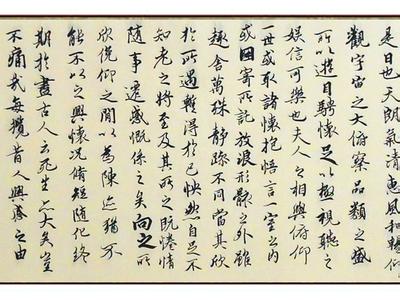 是日也天朗氣清惠風和暢仰
觀宇宙之大俯察品類之盛
所以遊目騁懷足以極視聽之
娛信可樂也夫人之相與俯仰
一世或取諸懷抱悟言一室之內
或因寄所託放浪形骸之外雖
趣舍萬殊靜躁不同當其欣
於所遇暫得於己怏然自足不
知老之將至及其所之既惓情
隨事遷感慨係之矣向之所
欣俛仰之間以為陳迹猶不
能不以之興懷況脩短隨化終
期於盡古人云死生亦大矣豈
不痛哉每攬昔人興感之由